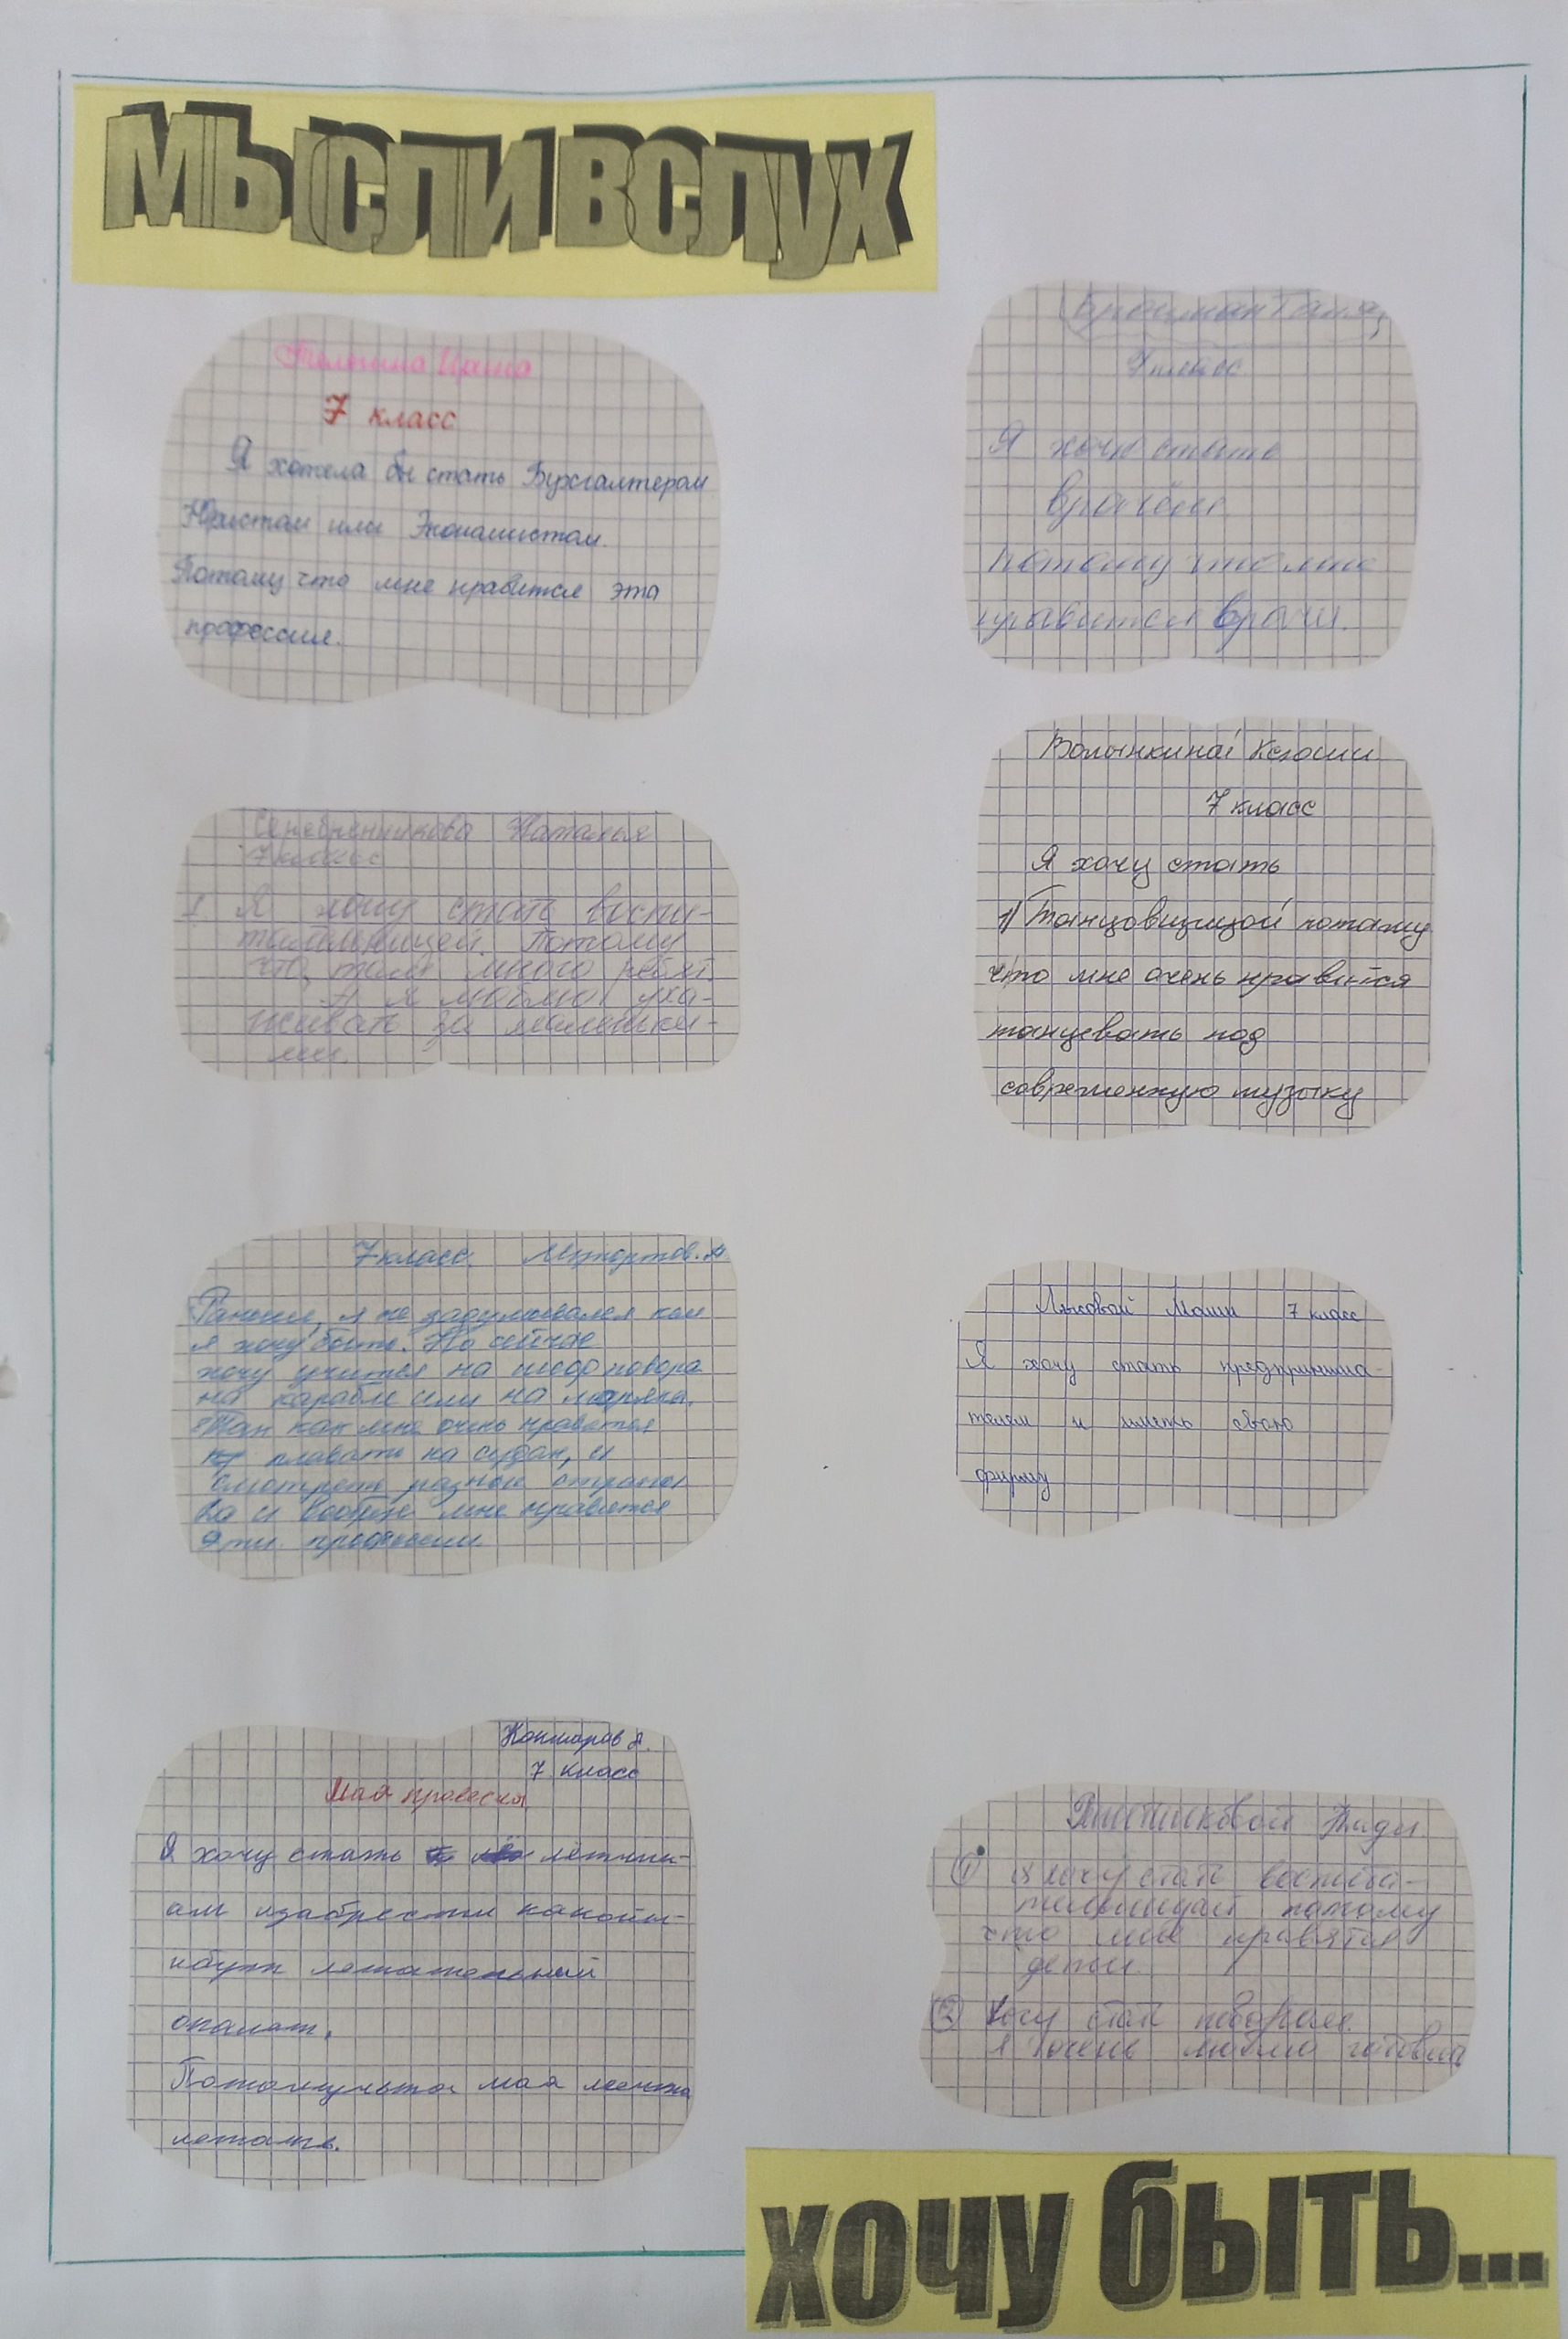 МЫСЛИ ВСЛУХ
Ириша
7 класс
Я хотела бы стать Бухгалтером
Юристом или Экономистом.
Потому что мне нравится эта
профессия.
Таня,
7 класс
Я хочу стать
врачём
потому что мне
нравится врачи.
Серебренникова Наталья
7 класс
1. Я хочу стать воспи-
тательницей. Потому
что, там много ребят.
А я люблю уха-
живать за маленьки-
ми.
Волынкиной Ксюши
7 класс
Я хочу стать
1) Танцовщицой потому
что мне очень нравится
танцевать под
современную музыку
7 класс.
я не задумывался кем
я хочу быть. Но сейчас
хочу учится на повора
на карабле или на моряка.
Так как мне очень нравется
плавать на судах, и
смотреть разные страны
Да и вообще мне нравется
Эти професии.
Лысовой Маши 7 класс
Я хочу стать предпринима-
телем и иметь свою
фирму
7 класс
Моя професия
Я хочу стать лётчи-
ам изабрести какойи-
нбуть летательный
опалат.
Потомучьто моя мечта
летать.
Нади
① Я хочу стать воспита-
тельницай потому
что мне нравятся
дети.
② Хочу стать поворам.
Я очень люблю готовить
ХОЧУ БЫТЬ...